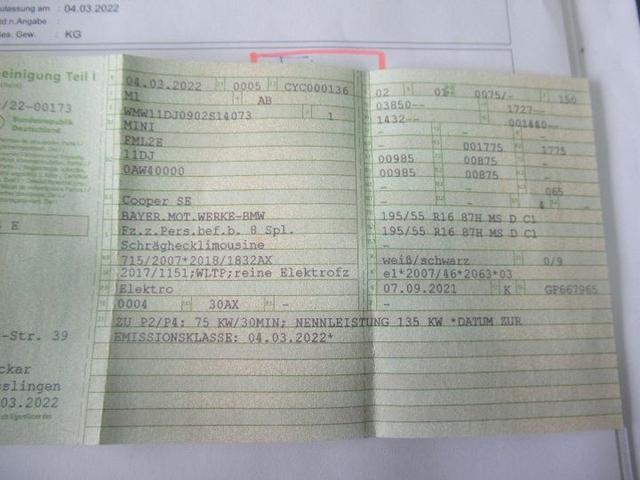 ulassung am : 04.03.2022
td.n.Angabe :
es. Gew. : KG
einigung Teil I
/22-00173
Bundesrepublik
Deutschland
E
-Str. 39
ckar
sslingen
.03.2022
04.03.2022 0005 CYC000136
M1 AB
WMW11DJ0902S14073 1
MINI
FML2E
11DJ
0AW40000
Cooper SE
BAYER.MOT.WERKE-BMW
Fz.z.Pers.bef.b. 8 Spl.
Schräghecklimousine
715/2007*2018/1832AX
2017/1151;WLTP;reine Elektrofz
Elektro
0004 30AX -
ZU P2/P4: 75 KW/30MIN; NENNLEISTUNG 135 KW *DATUM ZUR
EMISSIONSKLASSE: 04.03.2022*
02 01 0075/- 150
03850-- 1727--
1432-- 001440--
- - -
- 001775 1775
00985 00875 -
00985 00875 -
- - 065
- - 4 -
195/55 R16 87H MS D C1
195/55 R16 87H MS D C1
-
weiß/schwarz 0/9
e1*2007/46*2063*03
07.09.2021 K GF667965
- - -